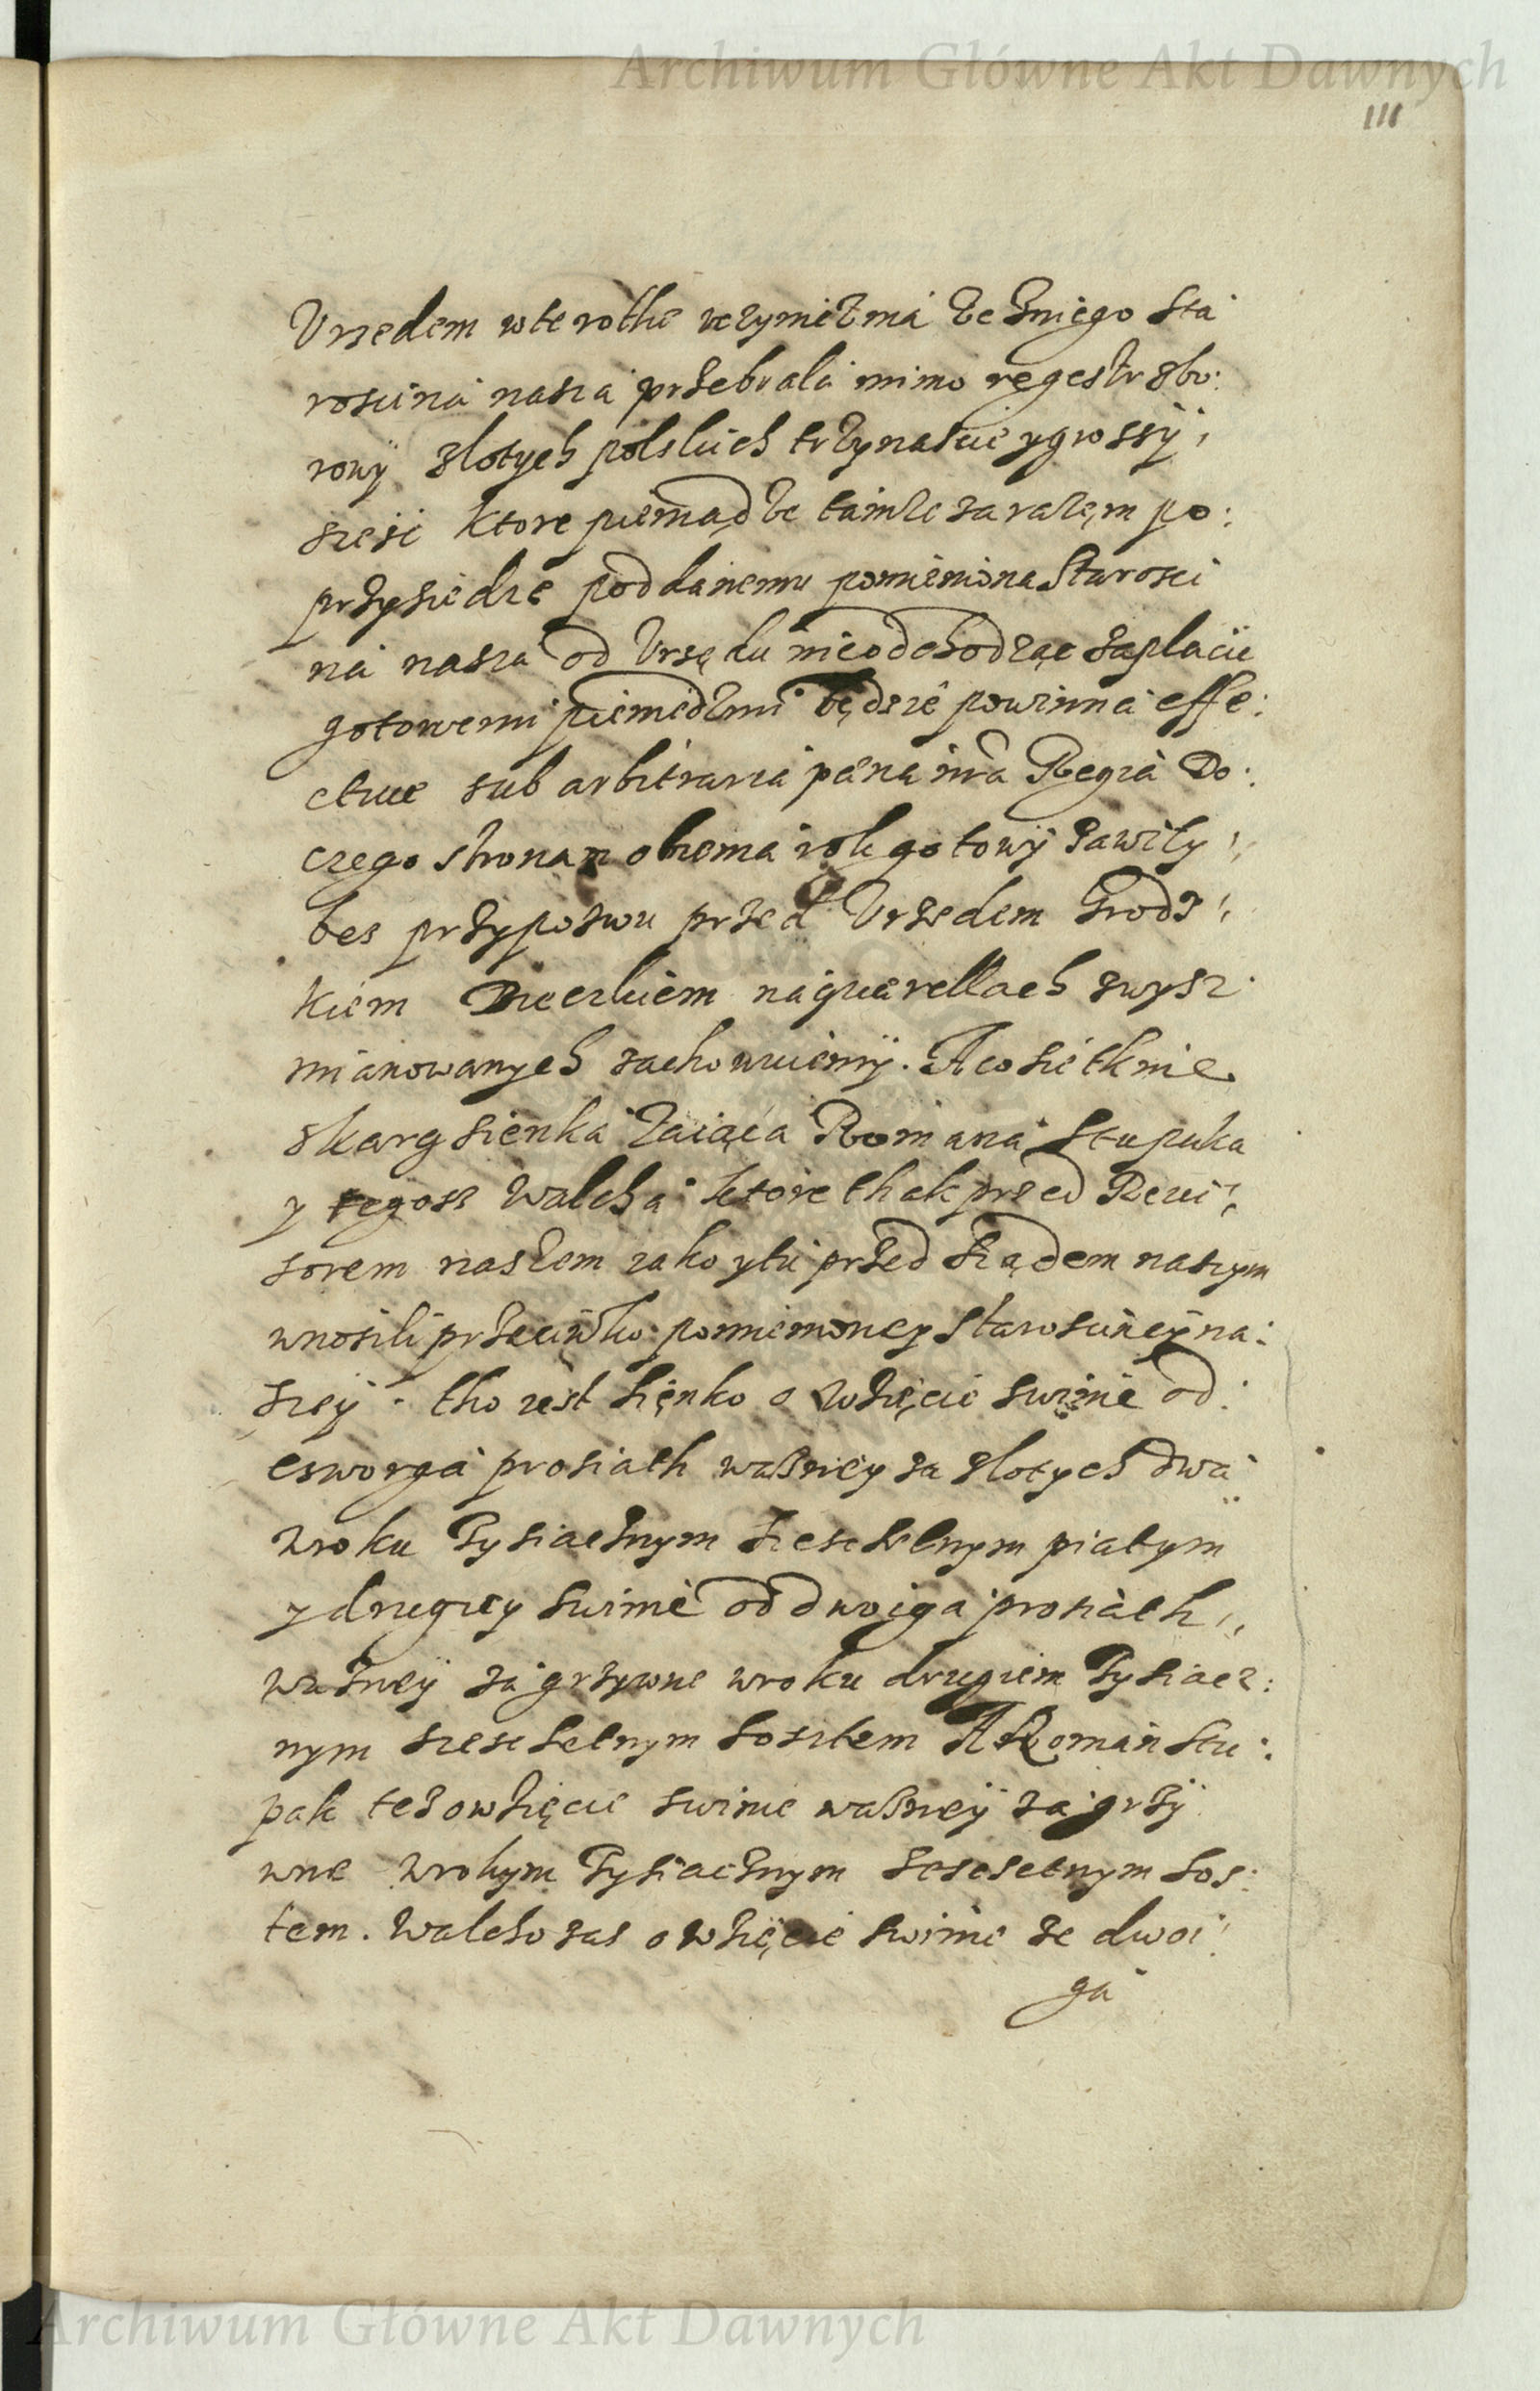 Archiwum Główne Akt Dawnych
111
Vrzedem w te rothe uczynicz ma że z niego sta
rosćina nasza przebrala mimo regestr zbo:
rowÿ zlotych polskich trzynascie y grossÿ
szesć ktore pieniądze tamże zarazem po:
przysiedze poddanemu pomieniona Starosci
na nasza od Vrzędu nieodchodząc zaplacić
gotowemi pieniedzmi będzie powinna effe:
ctiue sub arbitraria pæna nra Regia Do:
czego stronam obiema rok gotowÿ zawity
bez przypozwu przed Vrzedem Grodz
kiem na querellach zwysz
mianowanych zachowuiemÿ. A co sie tknie
skarg Sienka Zaiąca Romana Stupaka
y tegosz Walcha ktore thak przed Reui
sorem naszem iako y tu przed sządem naszym
wnosili przeciwko pomienioney Starosćineÿ na:
szeÿ. tho iest Sięnko o wzięcie swinie od
czworga prosiath ważney za zlotych dwa
w roku Tysiacznym szescsetnym piatym
y drugiey swinie od dwoiga prosiath
ważneÿ za grzywne w roku drugiem Tysiacz:
nym szescsetnym szostem A Roman Stu:
pak tez o wzięcie swinie ważneÿ za grzÿ
wne w rokym Tysiacznym szescsetnym szos:
tem. Walcho zas o wzięcie swinie ze dwoi
ga
Archiwum Główne Akt Dawnych